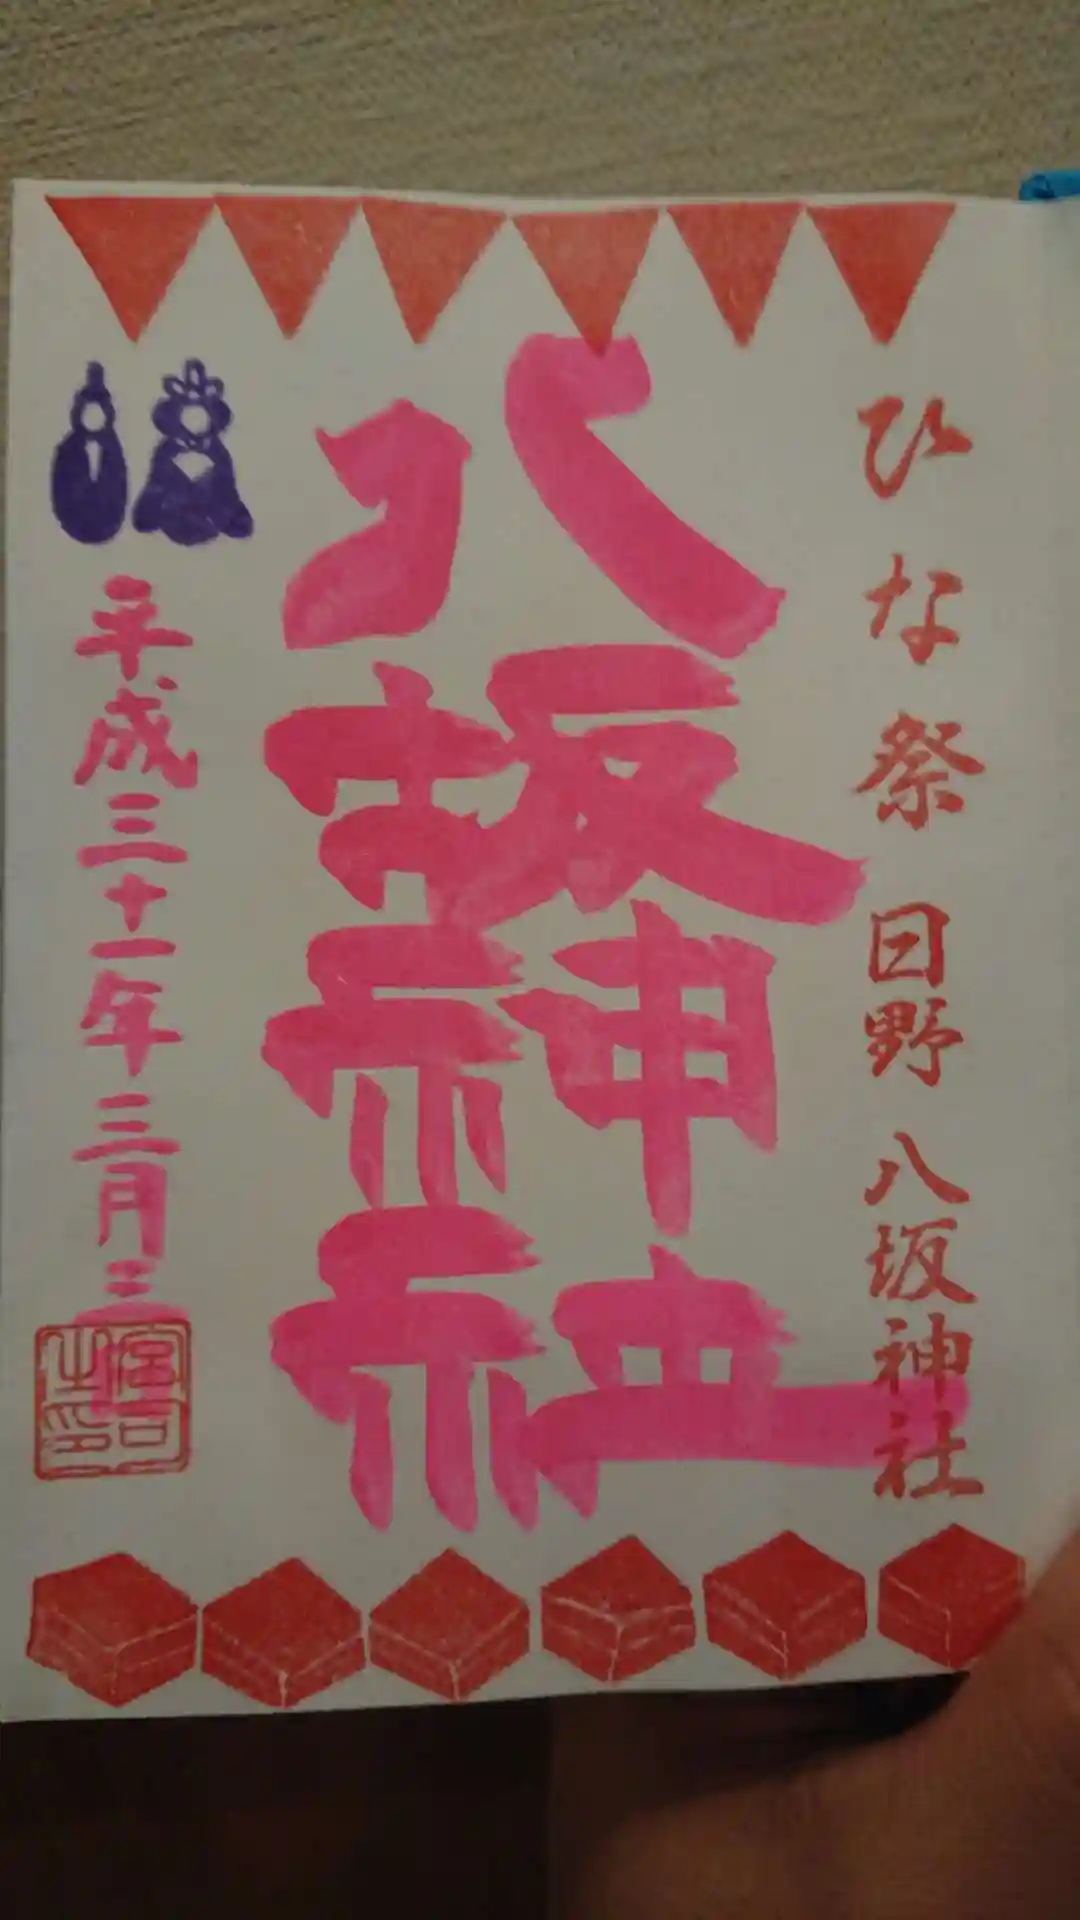 ひな祭 日野 八坂神社
八坂神社
平成三十一年三月三
宮司之印